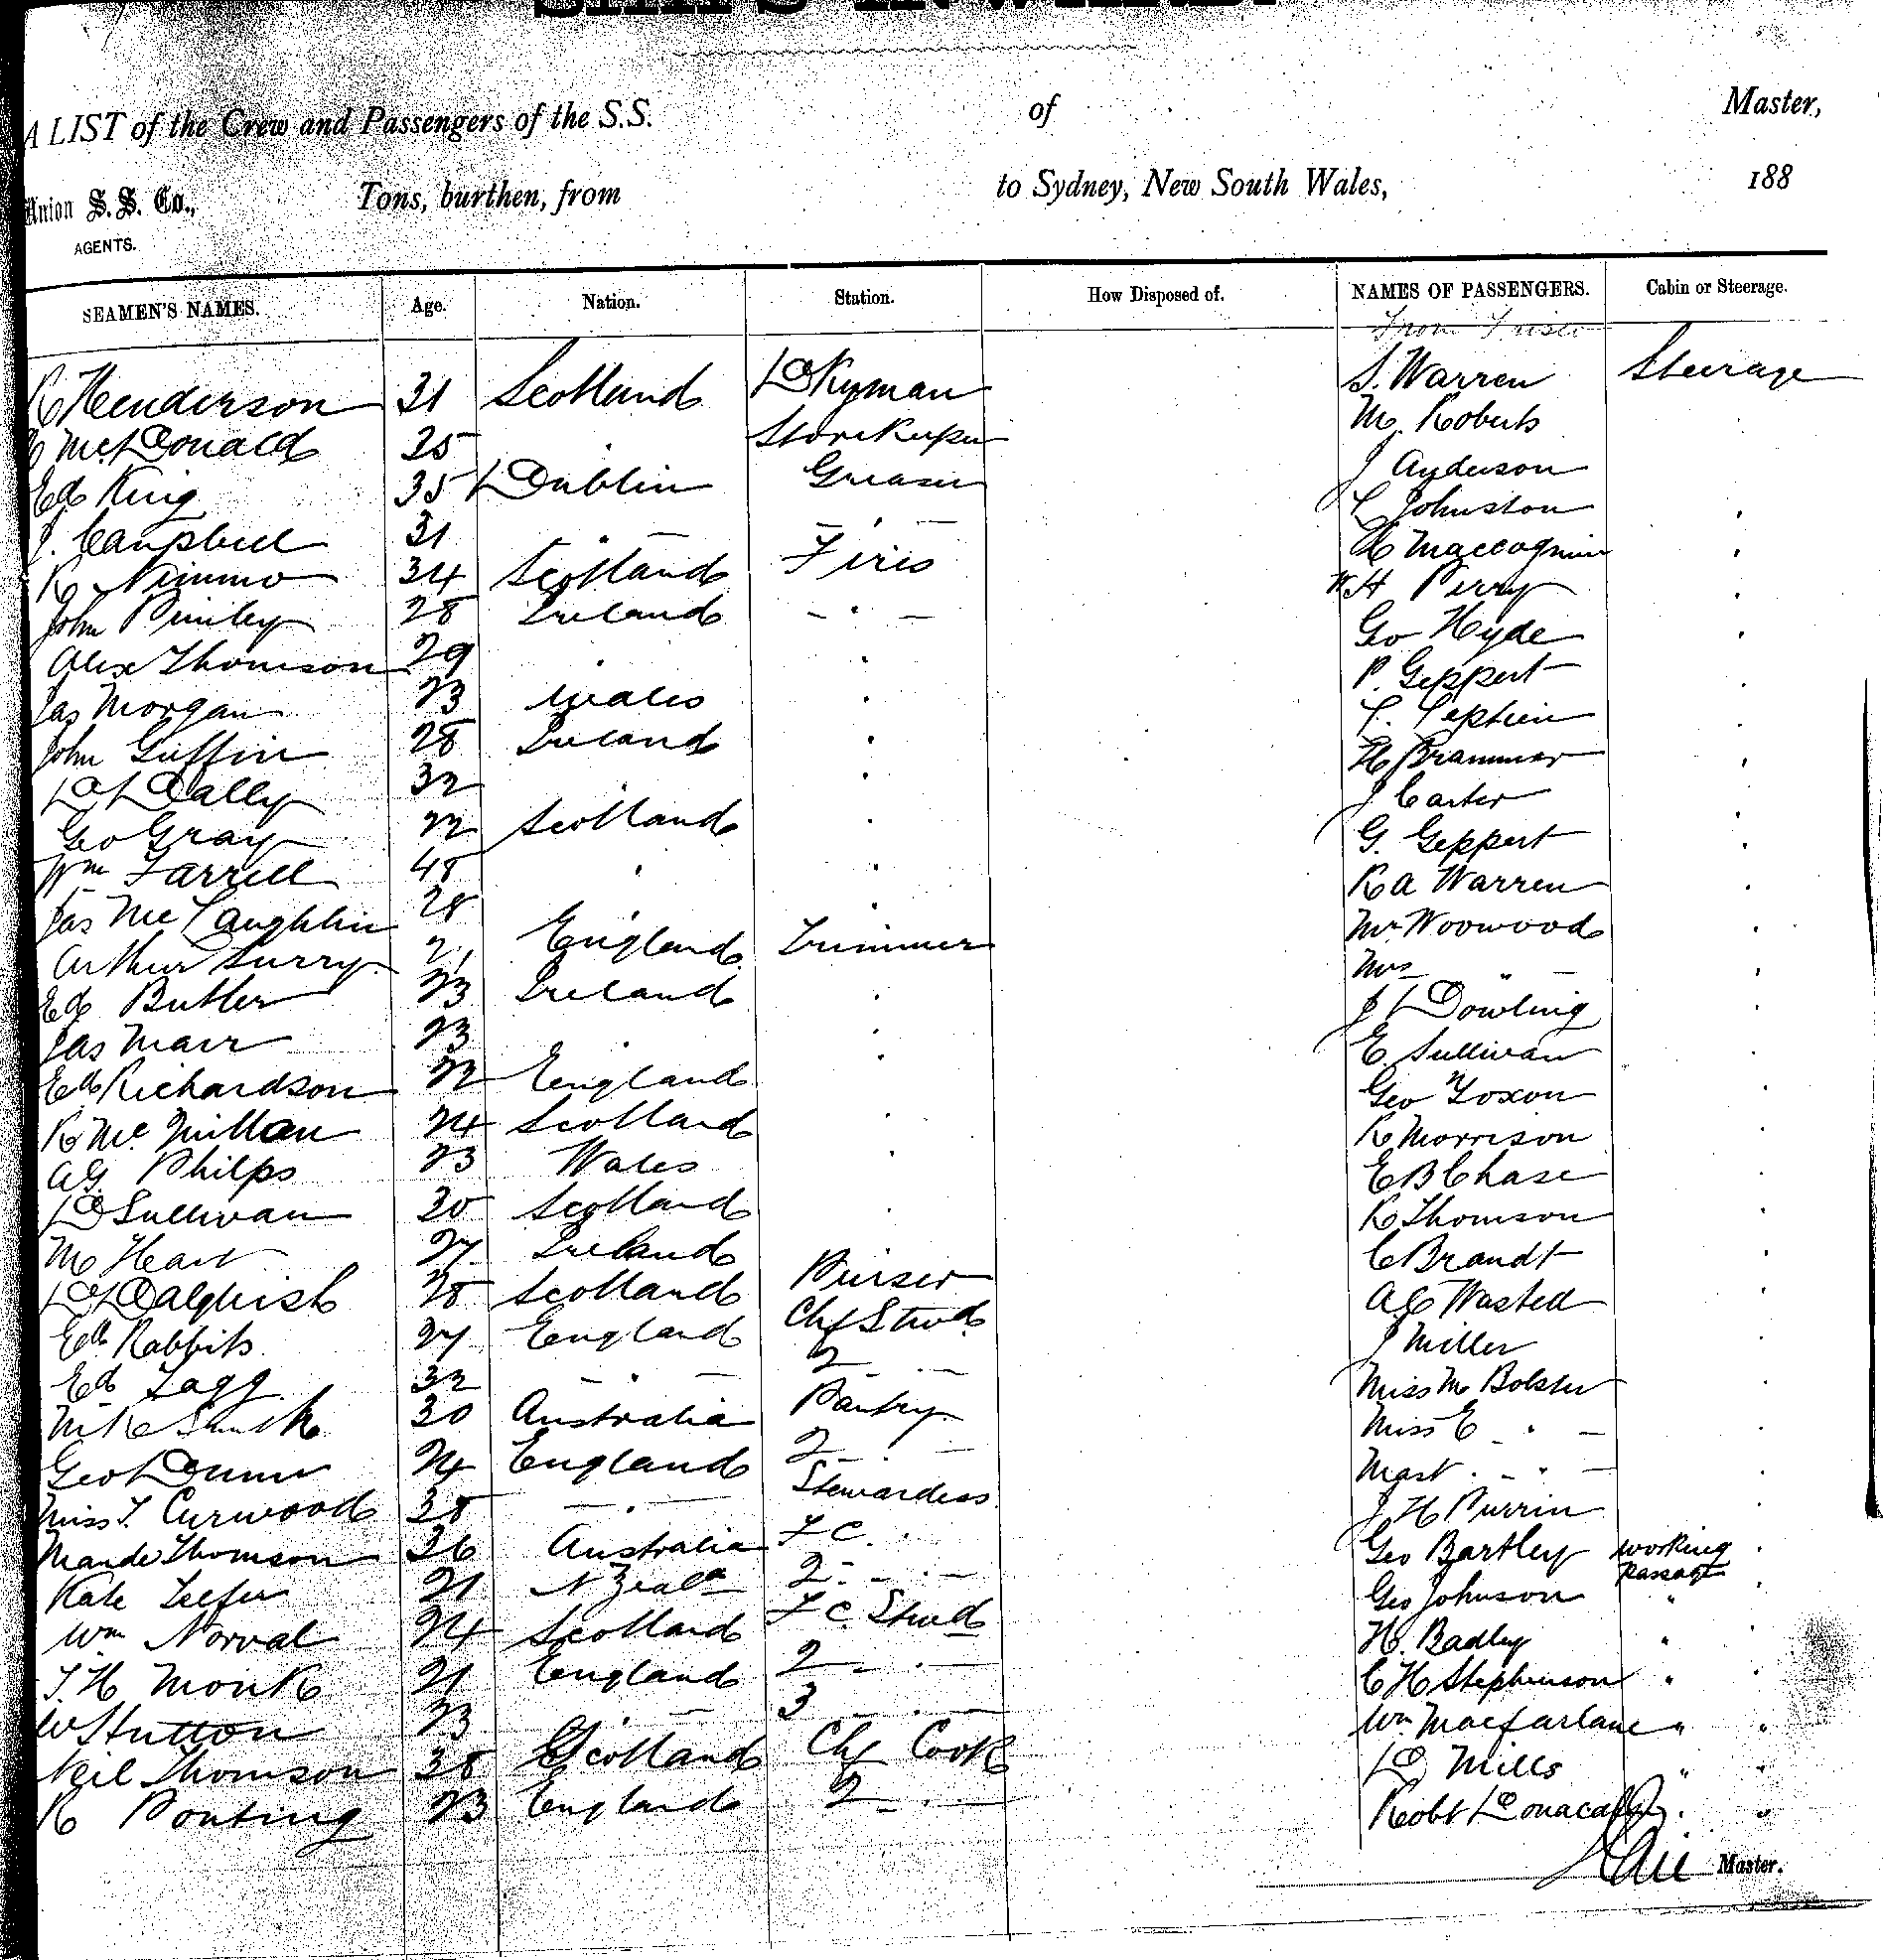 A LIST of the Crew and Passengers of the S.S. of Master,
Union S. S. Co., Tons, burthen, from to Sydney, New South Wales, 188
AGENTS.
SEAMEN'S NAMES. Age. Nation. Station. How Disposed of. NAMES OF PASSENGERS. Cabin or Steerage.
From Frisco
R Henderson 31 Scotland Dkyman S. Warren Steerage
McDonald 25 " Storekeeper M. Roberts
Ed King 35 Dublin Greaser J Anderson
J. Campbell 31 " " L Johnston "
R Nimmo 34 Scotland Fires "
John 28 Ireland " W H Perry "
Alex Thomson 29 " " Geo Hyde "
Jas Morgan 23 Wales " P. Geppert "
John Griffin 28 Ireland " "
D Dally 32 " " H Brammer "
Geo Gray 22 Scotland " J Carter "
Wm Farrell 48 " " G. Geppert "
Jas McLaughlin 28 " " R A Warren "
Arthur Surry 21 England Trimmer Mr Woowood "
Ed Butler 23 Ireland " Mrs " "
Jas Marr 23 " " J Dowling "
Ed Richardson 22 England " E. Sullivan "
R McMillan 24 Scotland " Geo Foxon "
A G Philps 23 Wales " R Morrison "
D Sullivan 30 Scotland " E B Chase "
M Heart 27 Ireland R Thomson "
D Dalquish 28 Scotland Purser C Brandt "
Ed Rabbits 27 England Chf Stwd A C Wasted "
Ed Tagg 32 " 2 " J Miller "
Smith 30 Australia Pantry Miss M Bolster "
Geo 24 England 2 " Miss E " "
Miss T. Curwood 38 " Stewardess Mast. " "
Maude Thomson 26 Australia F C. " J H Purrin "
Kate Leefer 21 N Zeald 2 " Geo Bartley working passage "
Wm Norval 24 Scotland F C. Stwd Geo Johnson " "
T. H Monk 21 England 2 " H. Badley " "
W Hutton 23 " 3 " C H Stephenson " "
Neil Thomson 38 Scotland Chf Cook Wm Macfarlane " "
R Ponting 23 England 2 " D Mills " "
Robt " "
Master.